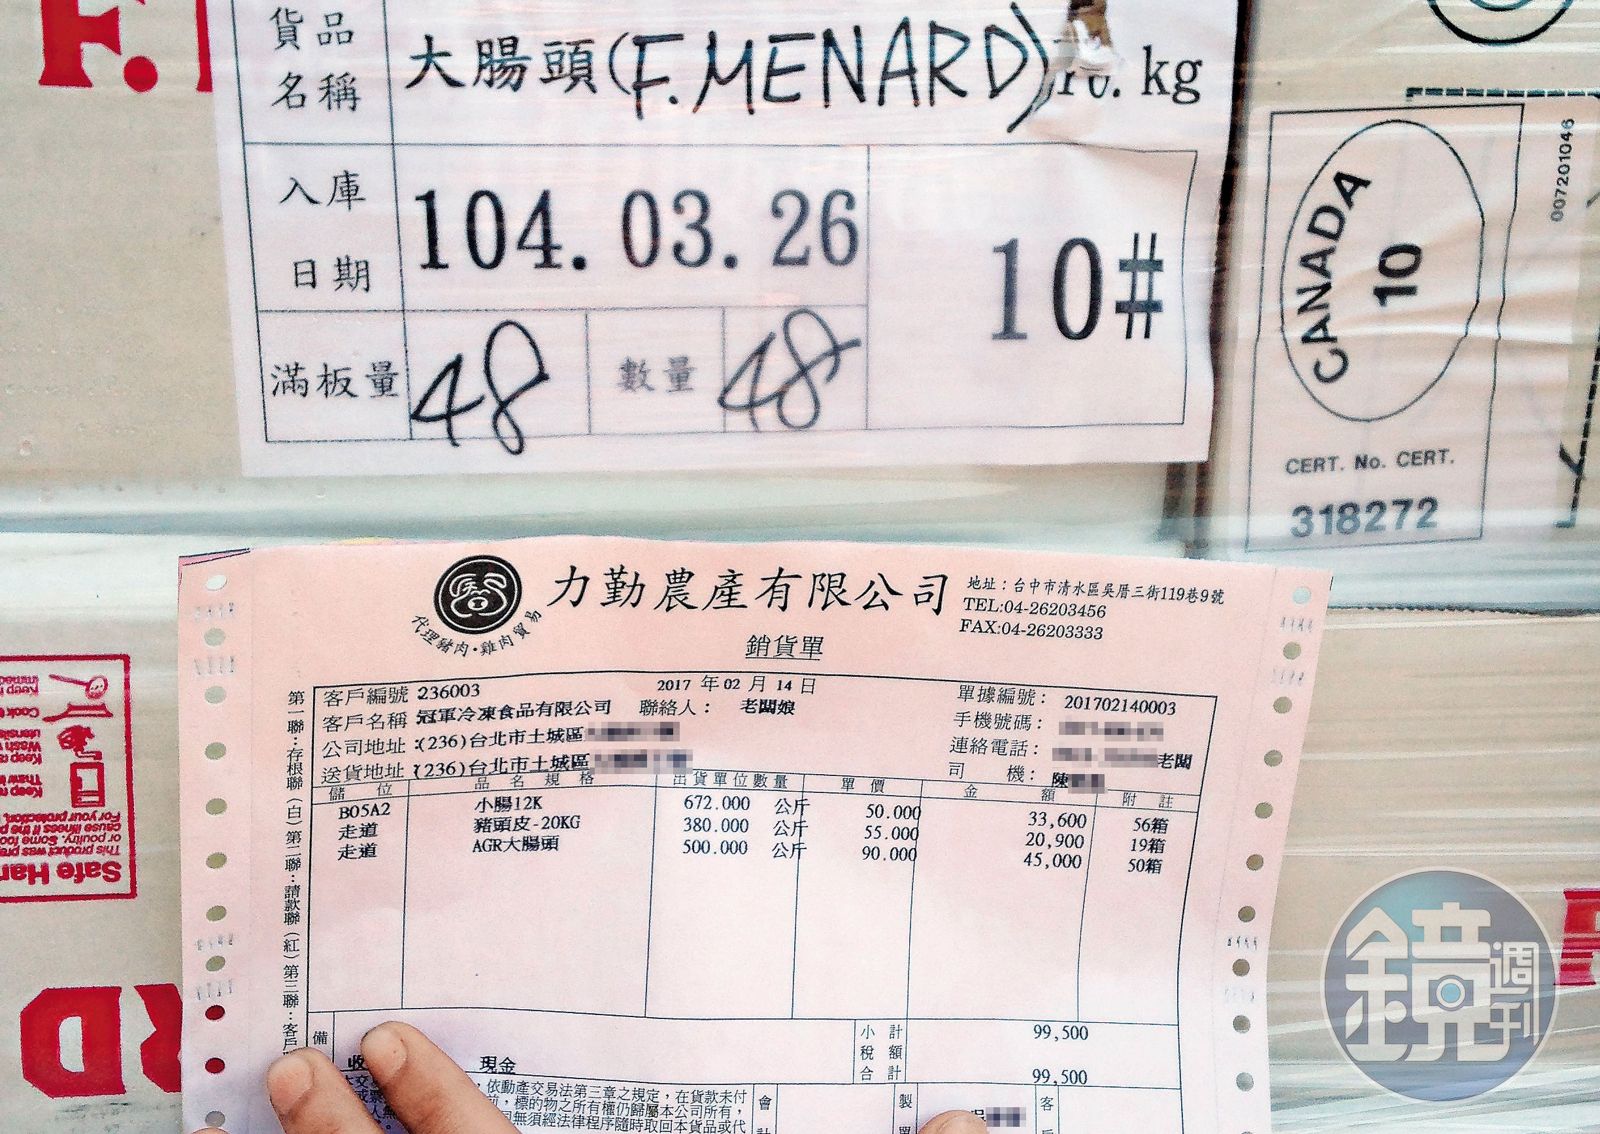 F.
貨品名稱 大腸頭(F.MENARD) kg
入庫日期 104.03.26 10#
滿板量 48 數量 48
CANADA
10
CERT. No. CERT.
318272
007201046
力勤農產有限公司
代理豬肉・雞肉貿易
地址：台中市清水區吳厝三街119巷9號
TEL:04-26203456
FAX:04-26203333
銷貨單
客戶編號：236003 2017 年 02 月 14 日 單據編號：201702140003
客戶名稱：冠軍冷凍食品有限公司 聯絡人：老闆娘 手機號碼：
公司地址：(236)台北市土城區 連絡電話： 老闆
送貨地址：(236)台北市土城區 司機：陳
儲位 品名規格 出貨單位數量 單價 金額 附註
B05A2 小腸12K 672.000 公斤 50.000 33,600 56箱
走道 豬頭皮-20KG 380.000 公斤 55.000 20,900 19箱
走道 AGR大腸頭 500.000 公斤 90.000 45,000 50箱
第一聯：存根聯(白)第二聯：請款聯(紅)第三聯：客戶
備 小計 99,500
收 現金 稅額
合計 99,500
依動產交易法第三章之規定，在貨款未付
前，標的物之所有權仍歸屬本公司所有，
無須經法律程序隨時取回本貨品或代
會
製
客
Keep
Cook
Wash
Keep
Safe Han
This product was
or poultry. Some foo
cause illness if the p
For your protection,
RD
鏡週刊